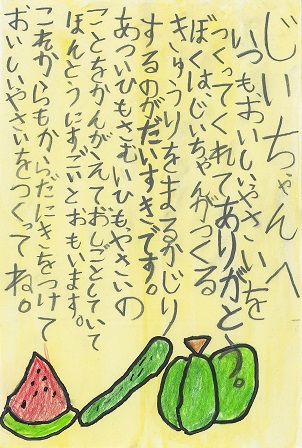 じいちゃんへ
いつも、おいしいやさいを
つくってくれてありがとう。
ぼくはじいちゃんがつくる
きゅうりをまるかじり
するのがだいすきです。
あついひもさむいひもやさいの
ことをかんがえておしごとしていて
ほんとうにすごいとおもいます。
これからもからだにきをつけて
おいしいやさいをつくってね。